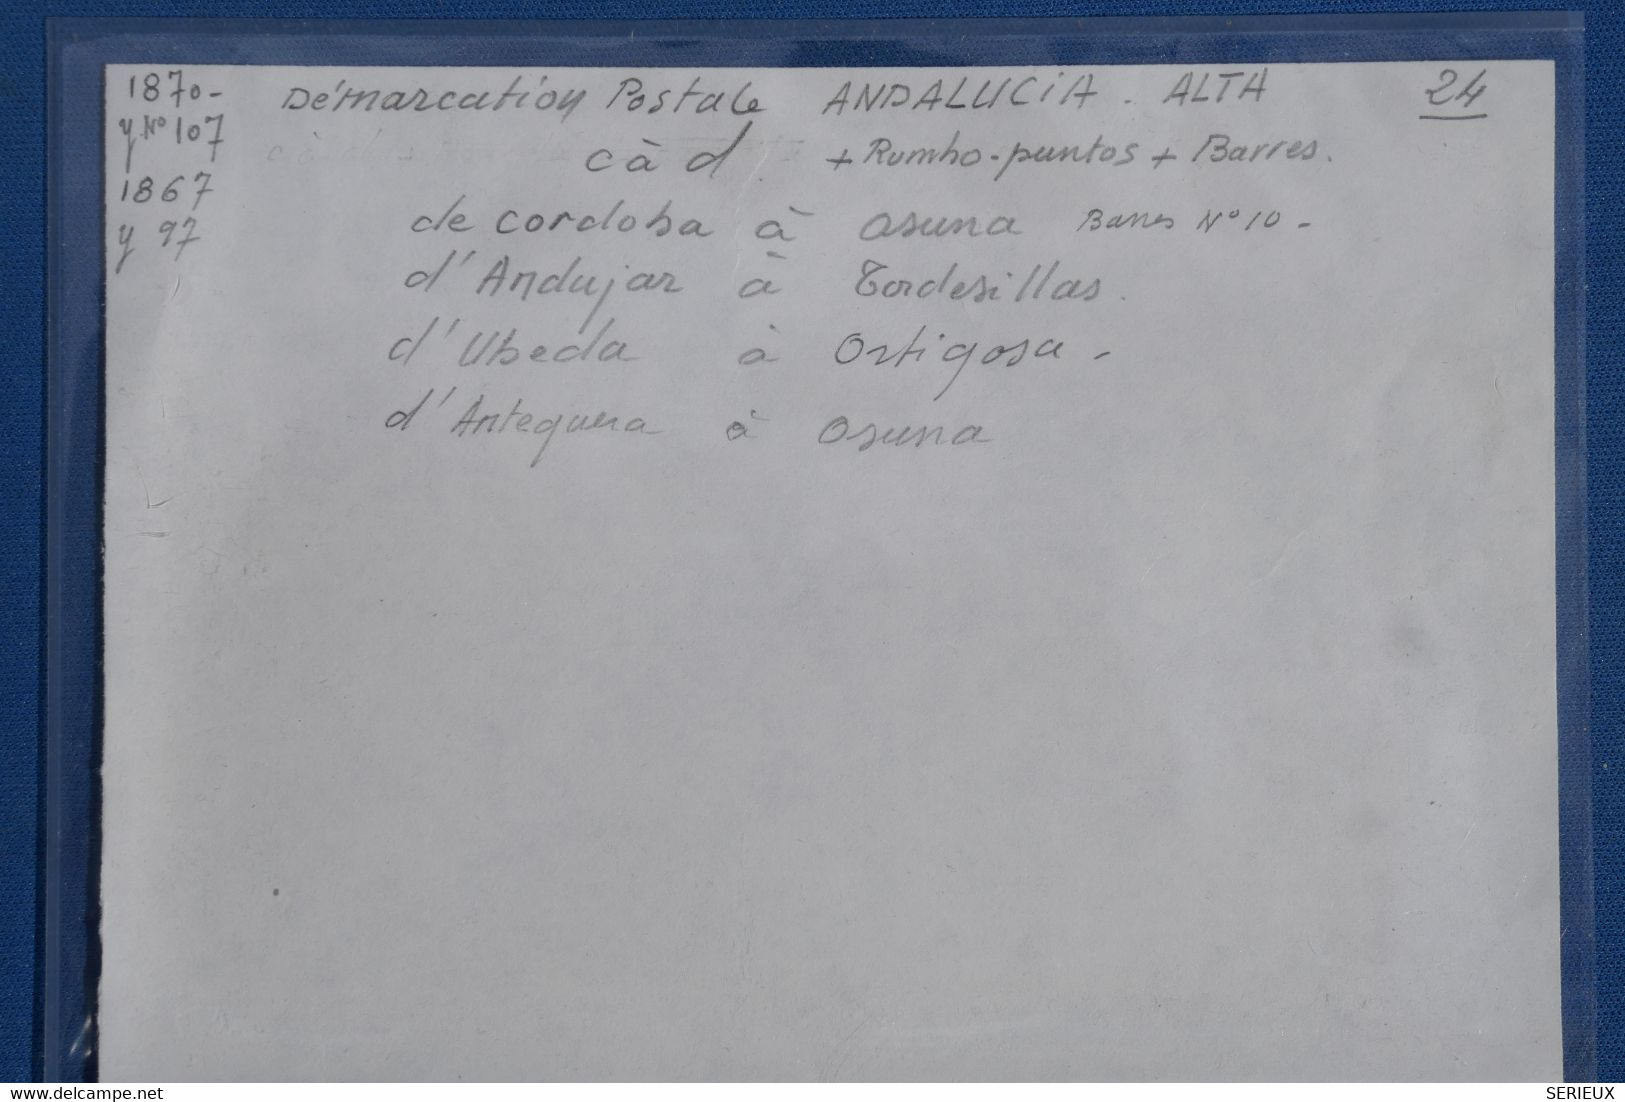 1870- Démarcation Postale ANDALUCiA. ALTA 24
y. No 107 càd. + Rumbo-puntos + Barres.
1867
y 97 de cordoba à osuna Barres No 10 -
d'Andujar à Tordesillas.
d'Ubeda à Ortigosa -
d'Antequera à osuna
SERIEUX